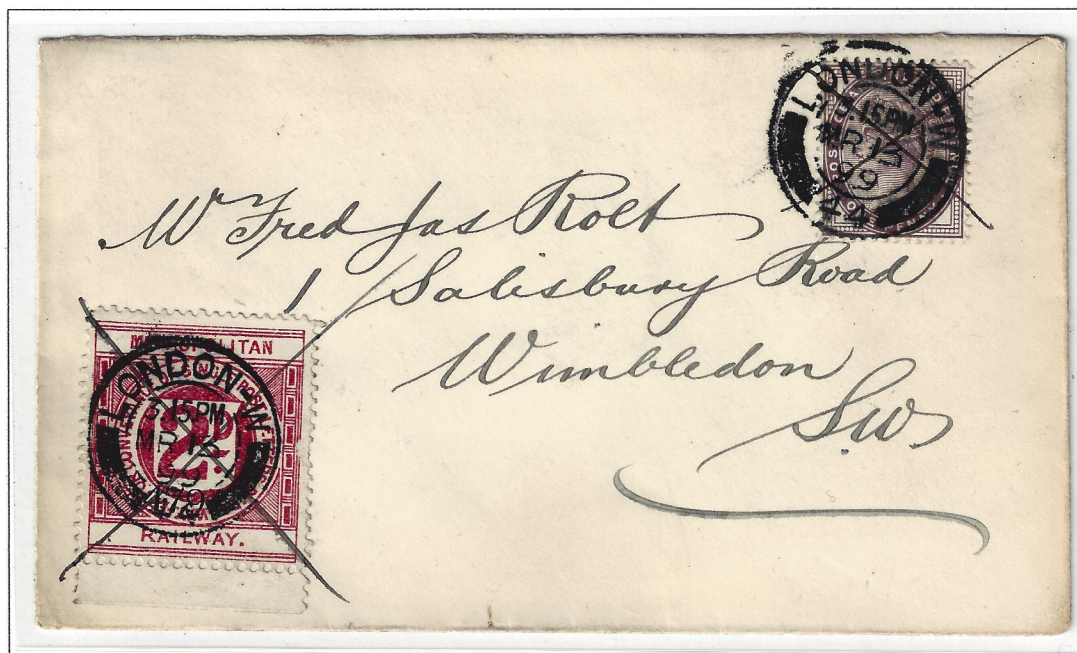 LONDON·W
3.15PM
MR 13
99
44
Mr Fred Jas Rolt
1 Salisbury Road
Wimbledon
SW
METROPOLITAN
LONDON·W
3.15PM
MR 13
99
2d.
RAILWAY.